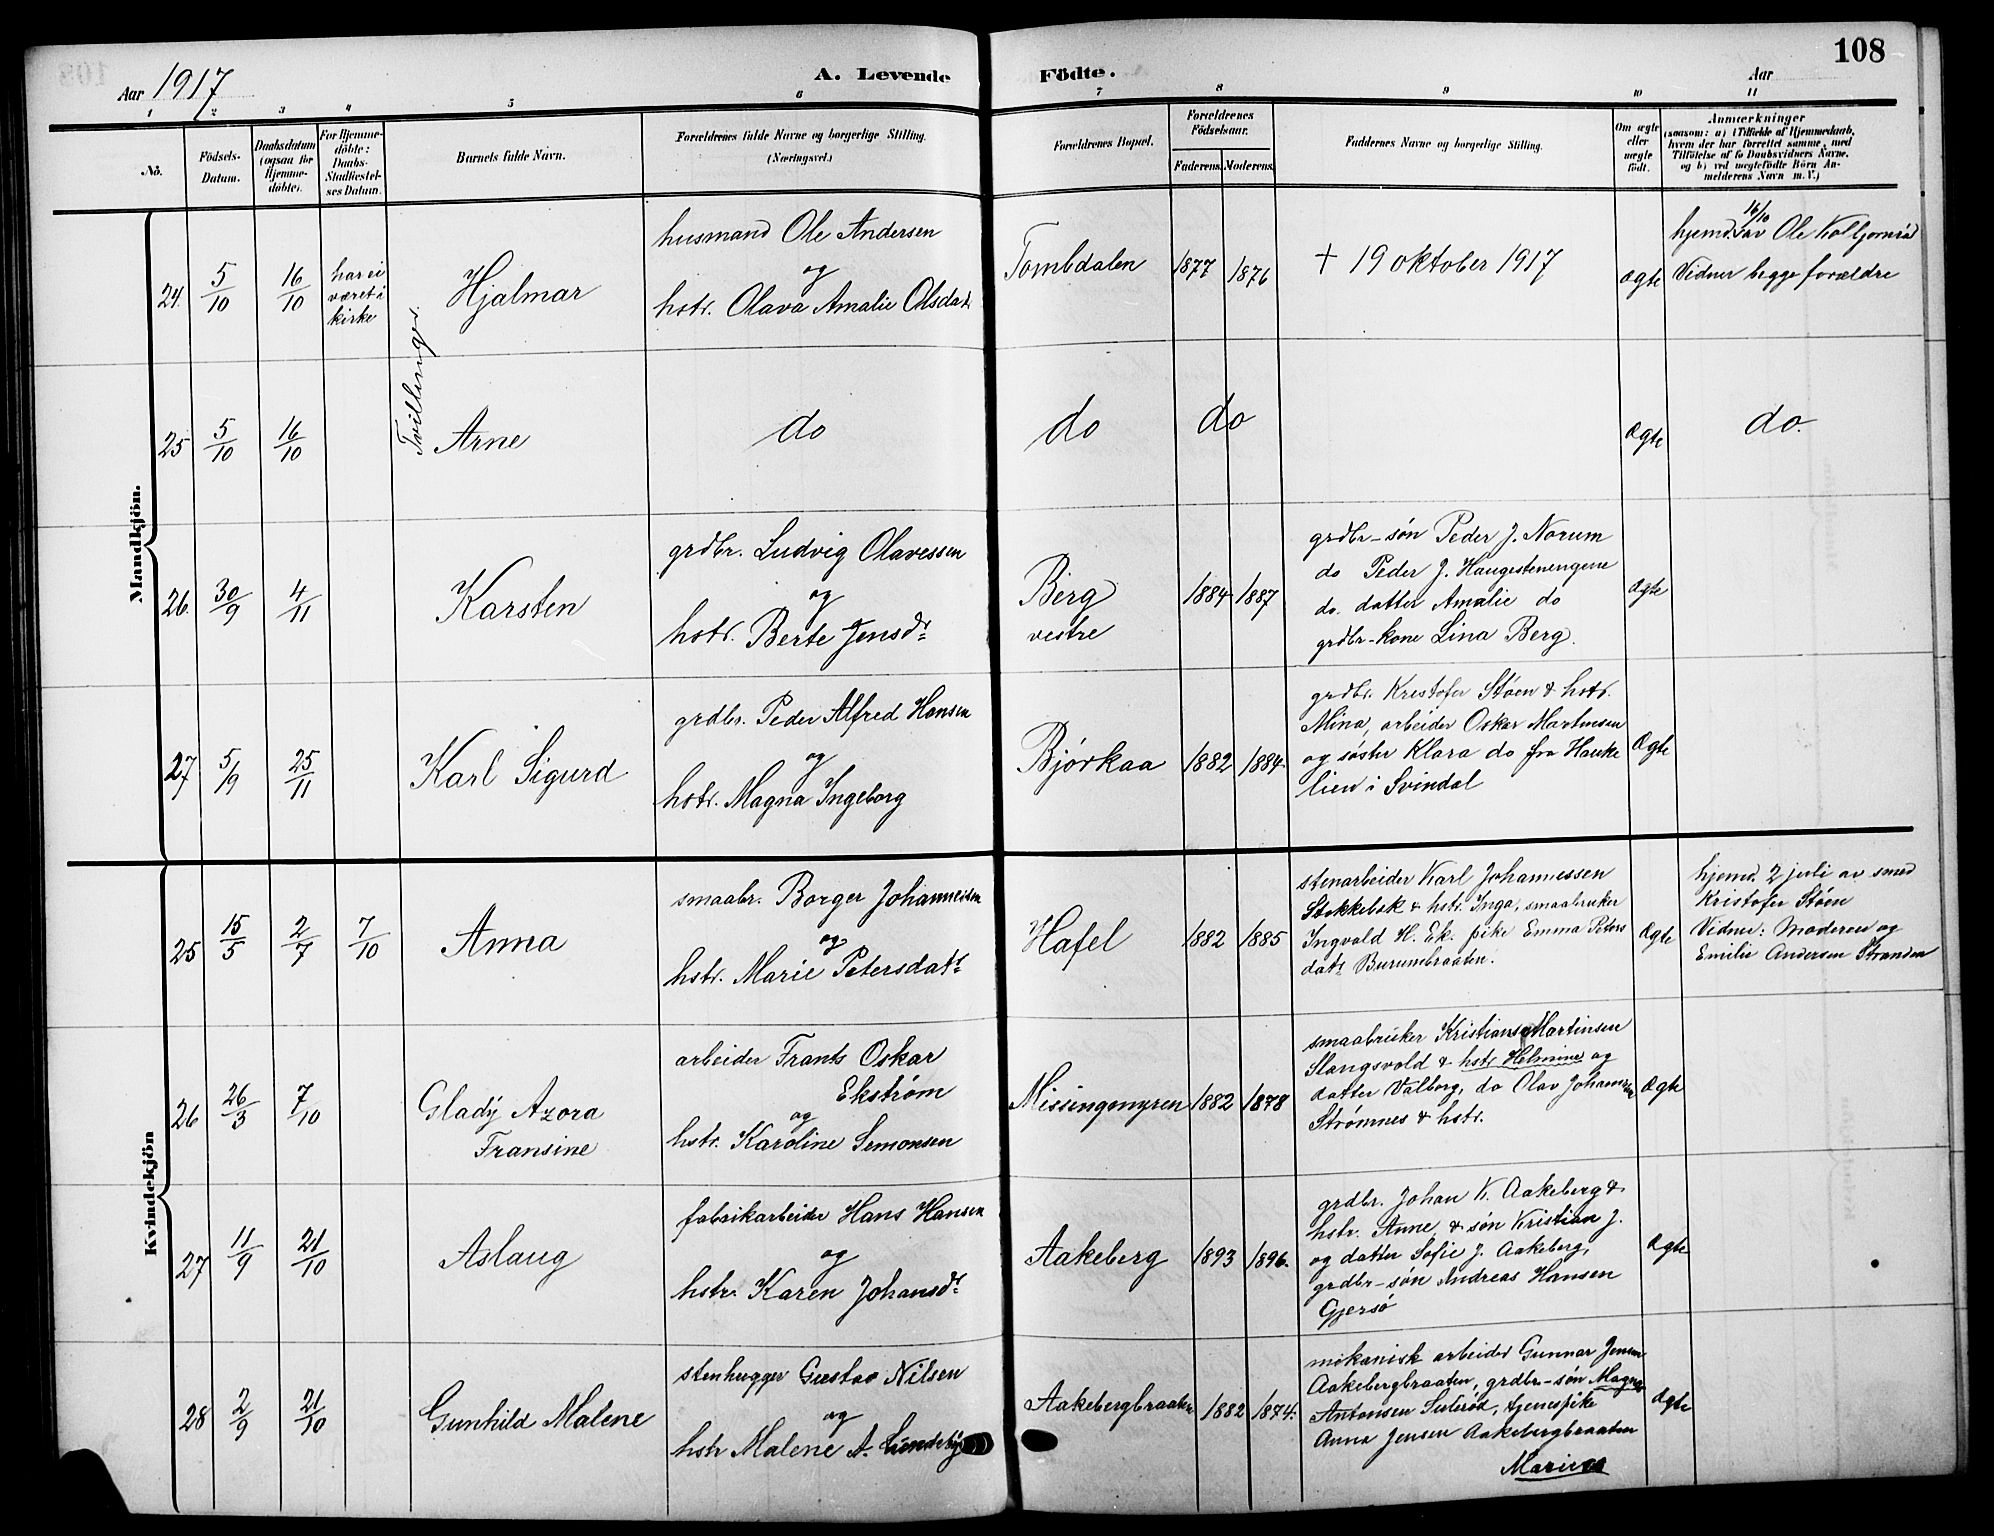 108
Aar 1917
A. Levende
Födte.
Aar
1 2 3 4 5 6 7 8 9 10 11
No.
Födsels-
Datum.
Daabsdatum
(ogsaa for
Hjemme-
döbte).
For Hjemme-
döbte:
Daabs-
Stadfæstel-
ses Datum.
Barnets fulde Navn.
Forældrenes fulde Navne og borgerlige Stilling.
(Næringsvei.)
Forældrenes Bopæl.
Forældrenes
Födselsaar.
Faderens. Moderens.
Faddernes Navne og borgerlige Stilling.
Om ægte
eller
uægte
födt.
Anmærkninger
(saasom: a) i Tilfælde af Hjemmedaab,
hvem der har forrettet samme, med
Tilföielse af to Daabsvidners Navne,
og b) ved uægtefödte Börn An-
melderens Navn m. V.)
Mandkjön.
Tvillinger.
24. 5/10 16/10
har ei
været i
kirke
Hjalmar
husmand Ole Andersen
og
hstr. Olava Amalie Olsdatr
Tombdalen
1877 1876
† 19 oktober 1917
ægte
hjemd. 16/10 av Ole
Vidner begge forældre
25 5/10 16/10
Arne
do
do
do
ægte
do.
26. 30/9 4/11
Karsten
grdbr. Ludvig Olavessen
og
hstr. Berte Jensdr
Berg
vestre
1884 1887
grdbr-søn Peder J. Norum
do Peder J. Haugestenengene
do. datter Amalie do
grdbr-kone Lina Berg.
ægte
27 5/9 25/11
Karl Sigurd
grdbr. Peder Alfred Hansen
og
hstr. Magna Ingeborg
Bjørkaa
1882 1884.
grdbr. Kristofer Støen & hstr.
Mina, arbeider Oskar Martinsen
og søster Klara do fra Hauke
lien i Svindal
ægte
Kvindekjön
25 15/5 2/7 7/10
Anna
smaabr. Borger Johannesen
og
hstr. Marie Petersdatr
Hafel
1882 1885
stenarbeider Karl Johannessen
Stokkebæk & hstr. Inga, smaabruker
Ingvald H. Ek. pike Emma Peters
datr Burumbraaten.
ægte
hjemd. 2 juli av smed
Kristofer Støen
Vidner: Moderen og
Emilie Andersen Stranden
26 26/3 7/10
Glady Azora
Fransine
arbeider Frants Oskar
Ekstrøm
og
hstr. Karoline Semonsen
Missingmyren
1882 1878
smaabruker Kristians Martinsen
Slangsvold & hstr Helmine og
datter Valborg, do Olav Johannsen
Strømnes & hstr.
ægte
27 11/9 21/10
Aslaug
fabrikarbeider Hans Hansen
og
hstr. Karen Johansdr
Aakeberg
1893 1896.
grdbr. Johan K. Aakeberg &
hstr. Anne, & søn Kristian J.
og datter Sofie J. Aakeberg,
grdbr-søn Andreas Hansen
Gjersø
ægte
28 2/9 21/10
Gunhild Malene
stenhugger Gustav Nilsen
og
hstr Malene A. Lundeby
Aakebergbraaten
1882 1874.
mekanisk arbeider Gunnar Jensen
Aakebergbraaten, grdbr-søn Magnus
Antonsen tjenespike
Anna Jensen Aakebergbraaten
Marius
ægte